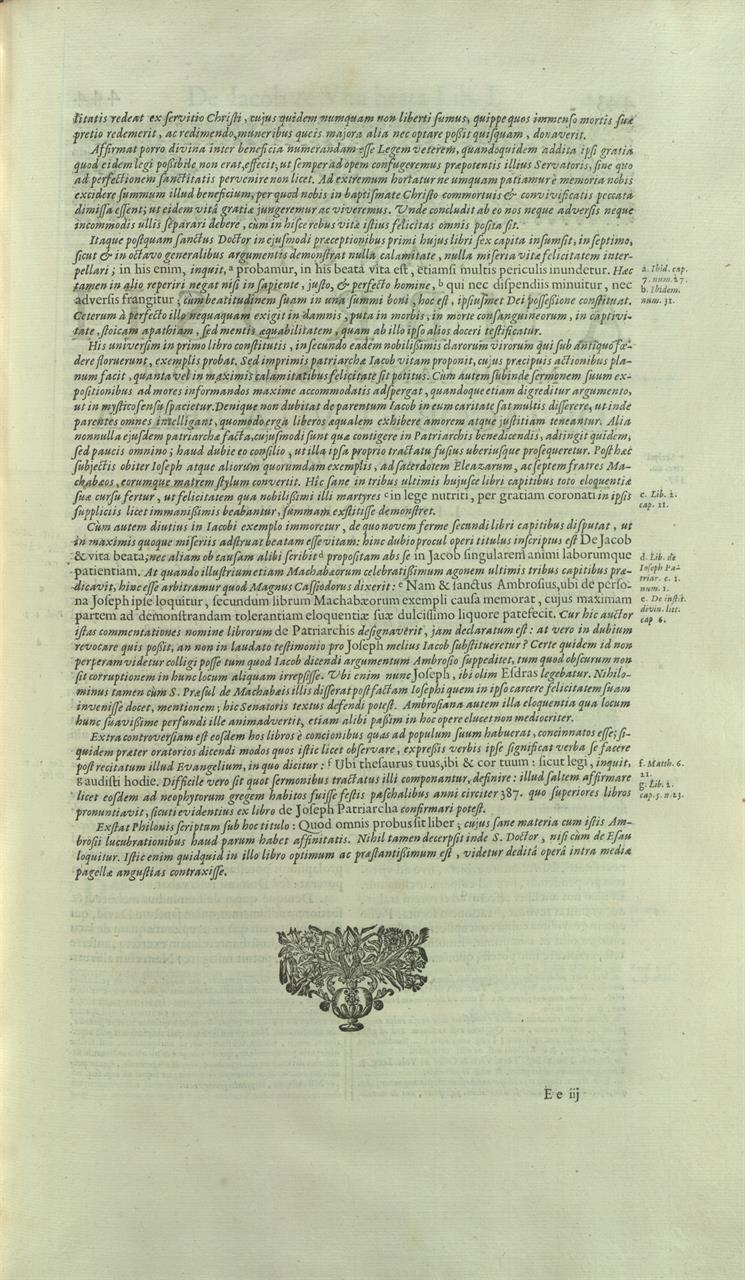 litatis redeat ex servitio Christi, cujus quidem numquam non liberti sumus, quippe quos immenso mortis suæ
pretio redemerit, ac redimendo, muneribus queis majora alia nec optare possit quisquam, donaverit.
Affirmat porro divina inter beneficia numerandam esse Legem veterem, quandoquidem addita ipsi gratia
quod eidem legi possibile non erat, effecit, ut semper ad opem confugeremus præpotentis illius Servatoris, sine quo
ad perfectionem sanctitatis pervenire non licet. Ad extremum hortatur ne umquam patiamur è memoria nobis
excidere summum illud beneficium, per quod nobis in baptismate Christo commortuis & convivificatis peccata
dimissa essent; ut eidem vitâ gratiæ jungeremur ac viveremus. Unde concludit ab eo nos neque adversis neque
incommodis ullis separari debere, cùm in hisce rebus vitæ istius felicitas omnis posita sit.
Itaque postquam sanctus Doctor in ejusmodi præceptionibus primi hujus libri sex capita insumsit, in septimo,
sicut & in octavo generalibus argumentis demonstrat nulla calamitate, nulla miseria vitæ felicitatem inter-
pellari; in his enim, inquit, a probamur, in his beata vita est, etiamsi multis periculis inundetur. Hæc
tamen in alio reperiri negat nisi in sapiente, justo, & perfecto homine, b qui nec dispendiis minuitur, nec
adversis frangitur, cùm beatitudinem suam in una summi boni, hoc est, ipsiusmet Dei possessione constituat.
Ceterum à perfecto illo nequaquam exigit in damnis, puta in morbis, in morte consanguineorum, in captivi-
tate, stoicam apathiam, sed mentis æquabilitatem, quam ab illo ipso alios doceri testificatur.
His universim in primo libro constitutis, in secundo eadem nobilissimis clarorum virorum qui sub antiquo fœ-
dere floruerunt, exemplis probat. Sed imprimis patriarchæ Iacob vitam proponit, cujus præcipuis actionibus pla-
num facit, quanta vel in maximis calamitatibus felicitate sit potitus. Cùm autem subinde sermonem suum ex-
positionibus ad mores informandos maxime accommodatis adspergat, quandoque etiam digreditur argumento,
ut in mystico sensu spacietur. Denique non dubitat de parentum Iacob in eum caritate sat multis disserere, ut inde
parentes omnes intelligant, quomodo erga liberos æqualem exhibere amorem atque justitiam teneantur. Alia
nonnulla ejusdem patriarchæ facta, cujusmodi sunt quæ contigere in Patriarchis benedicendis, adtingit quidem,
sed paucis omnino; haud dubie eo consilio, ut illa ipsa proprio tractatu fusius uberiusque prosequeretur. Post hæc
subjectis obiter Ioseph atque aliorum quorumdam exemplis, ad sacerdotem Eleazarum, ac septem fratres Ma-
chabæos, eorumque matrem stylum convertit. Hic sane in tribus ultimis hujusce libri capitibus toto eloquentiæ
suæ cursu fertur, ut felicitatem qua nobilissimi illi martyres c in lege nutriti, per gratiam coronati in ipsis
suppliciis licet immanissimis beabantur, summam exstitisse demonstret.
Cùm autem diutius in Iacobi exemplo immoretur, de quo novem ferme secundi libri capitibus disputat, ut
in maximis quoque miseriis adstruat beatam esse vitam: hinc dubio procul operi titulus inscriptus est De Jacob
& vita beata; nec aliam ob causam alibi scribit d propositam abs se in Jacob singularem animi laborumque
patientiam. At quando illustrium etiam Machabæorum celebratissimum agonem ultimis tribus capitibus præ-
dicavit, hinc esse arbitramur quod Magnus Cassiodorus dixerit: e Nam & sanctus Ambrosius, ubi de perso-
na Joseph ipse loquitur, secundum librum Machabæorum exempli causa memorat, cujus maximam
partem ad demonstrandam tolerantiam eloquentiæ suæ dulcissimo liquore patefecit. Cur hic auctor
istas commentationes nomine librorum de Patriarchis designaverit, jam declaratum est: at vero in dubium
revocare quis possit, an non in laudato testimonio pro Joseph melius Iacob substitueretur? Certe quidem id non
perperam videtur colligi posse tum quod Iacob dicendi argumentum Ambrosio suppeditet, tum quod obscurum non
sit corruptionem in hunc locum aliquam irrepsisse. Ubi enim nunc Joseph, ibi olim Esdras legebatur. Nihilo-
minus tamen cùm S. Præsul de Machabæis illis disserat post factam Iosephi quem in ipso carcere felicitatem suam
invenisse docet, mentionem; hic Senatoris textus defendi potest. Ambrosiana autem illa eloquentia qua locum
hunc suavissime perfundi ille animadvertit, etiam alibi passim in hoc opere elucet non mediocriter.
Extra controversiam est eosdem hos libros è concionibus quas ad populum suum habuerat, concinnatos esse; si-
quidem præter oratorios dicendi modos quos istic licet observare, expressis verbis ipse significat verba se facere
post recitatum illud Evangelium, in quo dicitur: f Ubi thesaurus tuus, ibi & cor tuum: sicut legi, inquit,
g audisti hodie. Difficile vero sit quot sermonibus tractatus illi componantur, definire: illud saltem affirmare
licet eosdem ad neophytorum gregem habitos fuisse festis paschalibus anni circiter 387. quo superiores libros
pronuntiavit, sicuti evidentius ex libro de Joseph Patriarcha confirmari potest.
Exstat Philonis scriptum sub hoc titulo: Quod omnis probus sit liber; cujus sane materia cum istis Am-
brosii lucubrationibus haud parum habet affinitatis. Nihil tamen decerpsit inde S. Doctor, nisi cùm de Esau
loquitur. Istic enim quidquid in illo libro optimum ac præstantissimum est, videtur deditâ operâ intra mediæ
pagellæ angustias contraxisse.
a. Ibid. cap.
7. num. 27.
b. Ibidem.
num. 31.
c. Lib. 2.
cap. 11.
d. Lib. de
Ioseph Pa-
triar. c. 1.
num. 1.
e. De instit.
divin. litt.
cap 6.
f. Matth. 6.
21.
g. Lib. 2.
cap. 5. n. 23.
E e iij